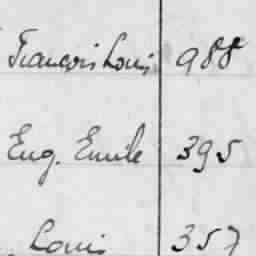 François Louis 988
Eug. Emile 395
Louis 357